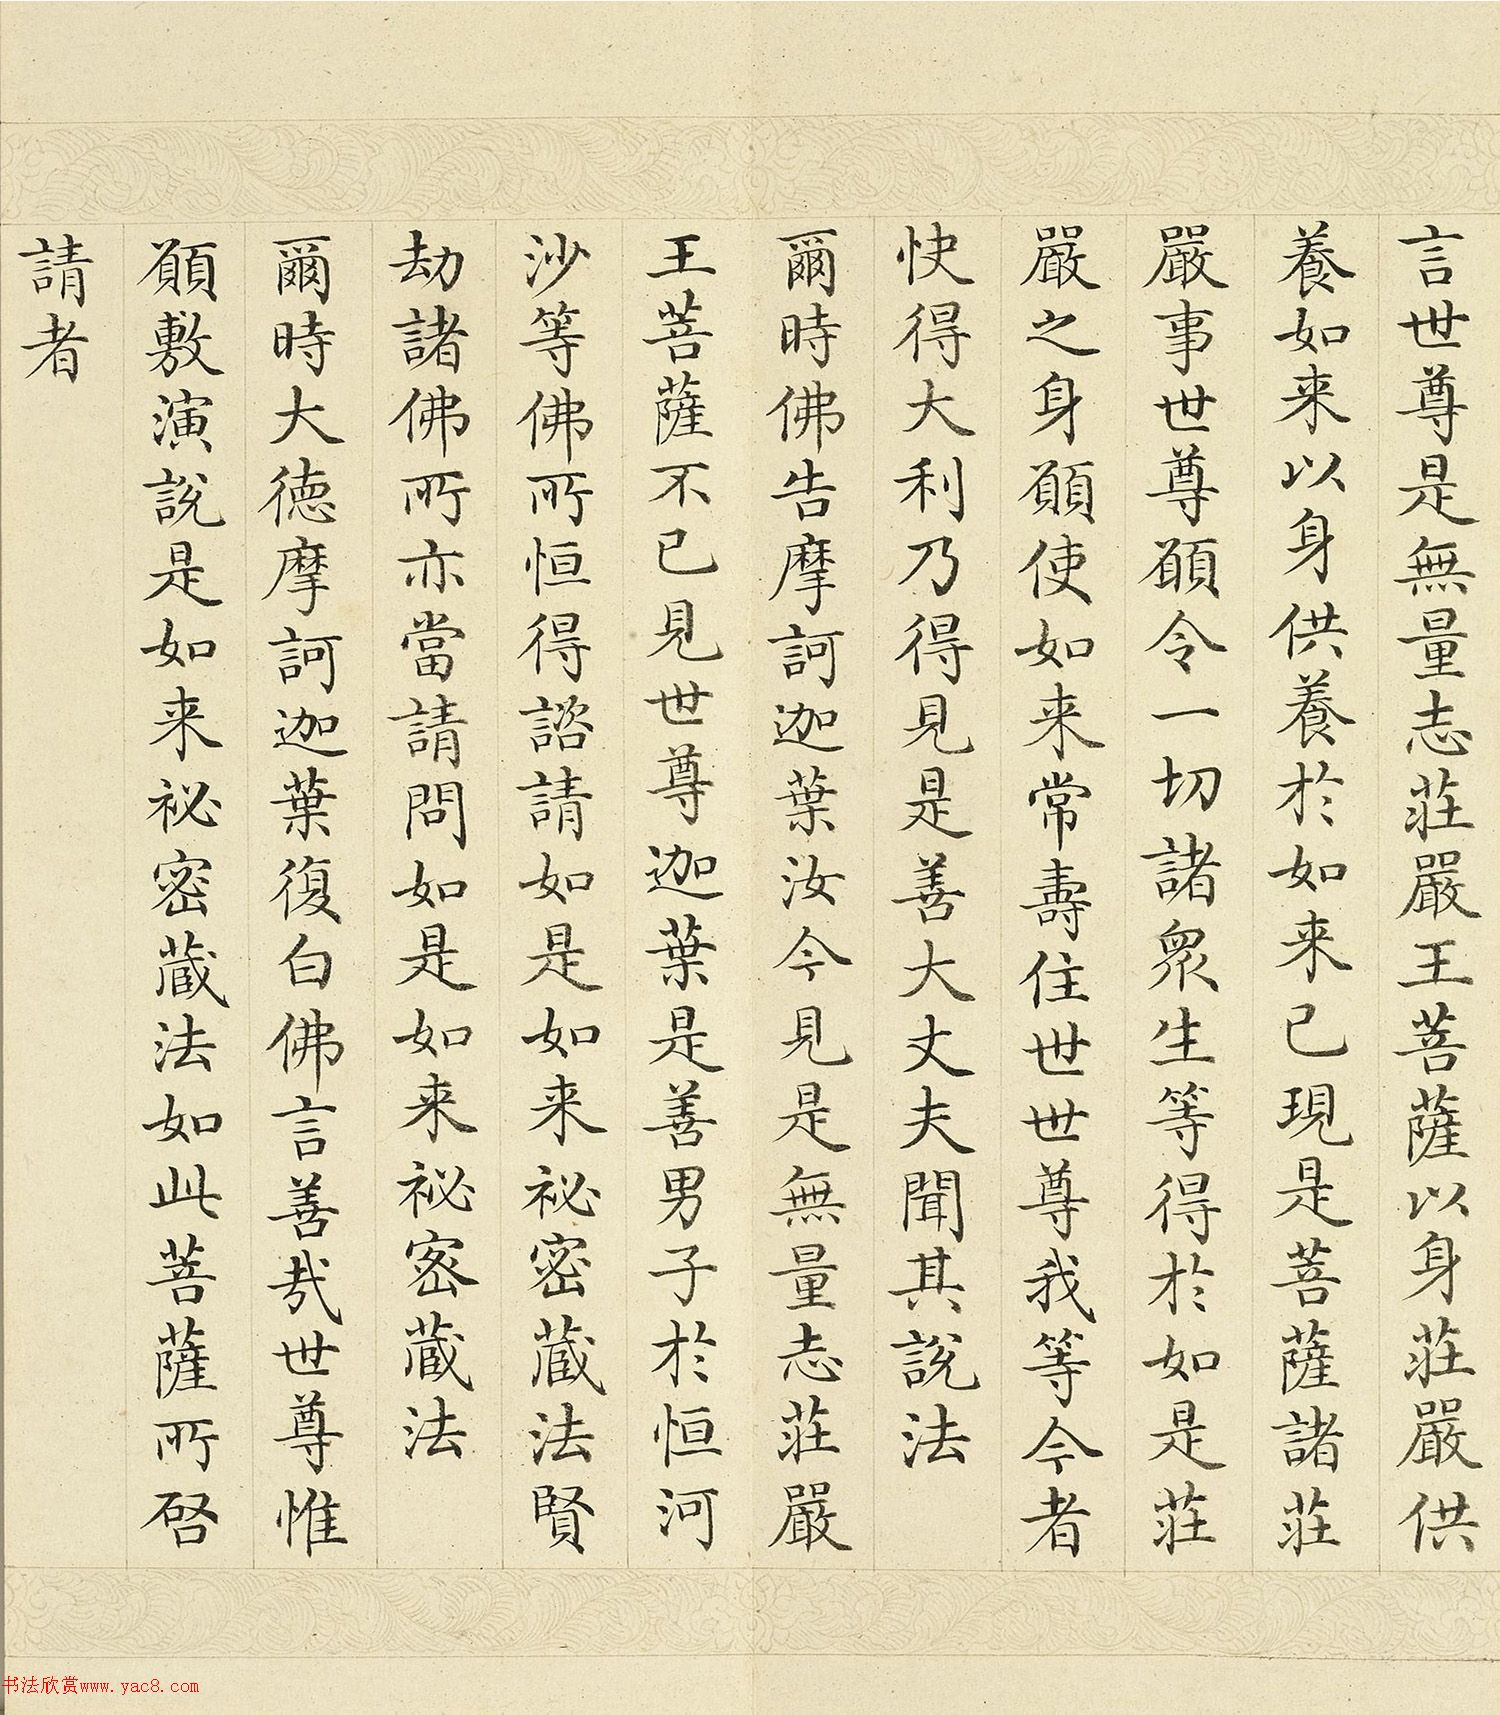 言世尊是無量志莊嚴王菩薩以身莊嚴供
養如来以身供養於如来已現是菩薩諸莊
嚴事世尊願令一切諸眾生等得於如是莊
嚴之身願使如来常壽住世世尊我等今者
快得大利乃得見是善大丈夫聞其說法
爾時佛告摩訶迦葉汝今見是無量志莊嚴
王菩薩不已見世尊迦葉是善男子於恒河
沙等佛所恒得諮請如是如来祕密蔵法賢
劫諸佛所亦當請問如是如来祕密蔵法
爾時大德摩訶迦葉復白佛言善哉世尊惟
願敷演說是如来祕密蔵法如此菩薩所啓
請者
书法欣赏www.yac8.com